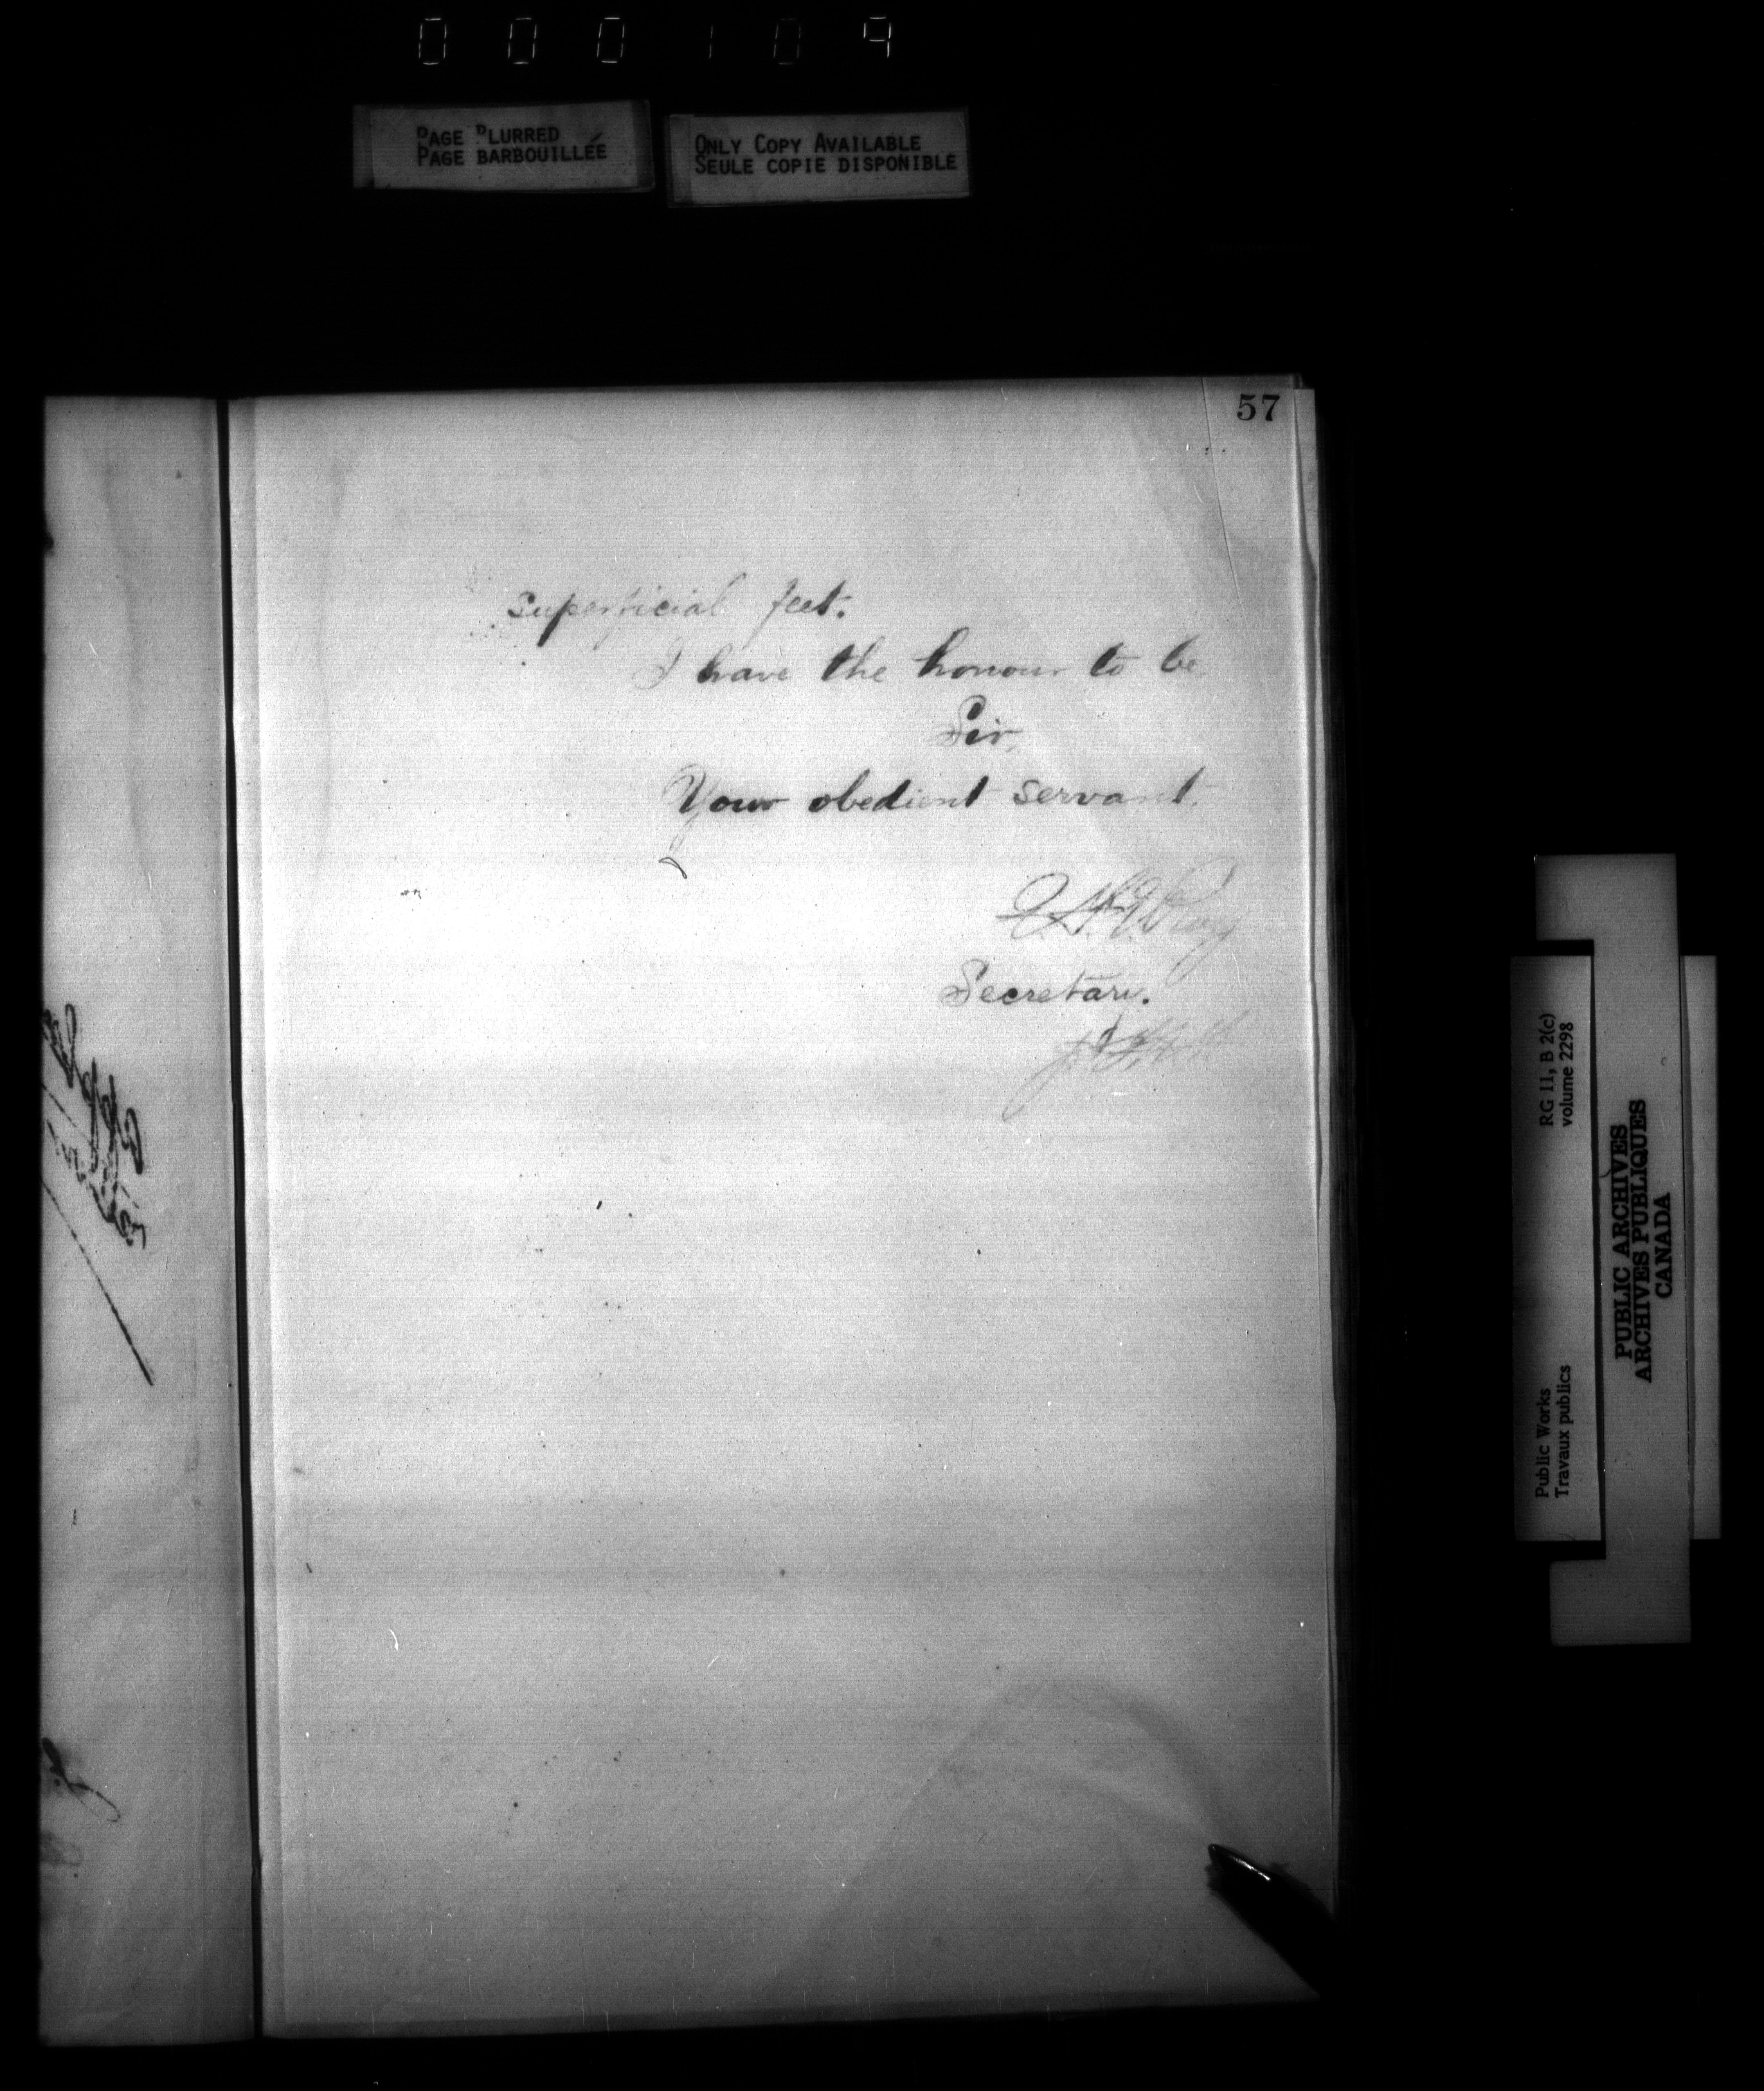 000109
PAGE BLURRED
PAGE BARBOUILLÉE
ONLY COPY AVAILABLE
SEULE COPIE DISPONIBLE
57
superficial feet.
I have the honour to be,
Sir,
Your obedient servant.
Secretary.
Public Works
Travaux publics
RG 11, B 2(c)
volume 2298
PUBLIC ARCHIVES
ARCHIVES PUBLIQUES
CANADA